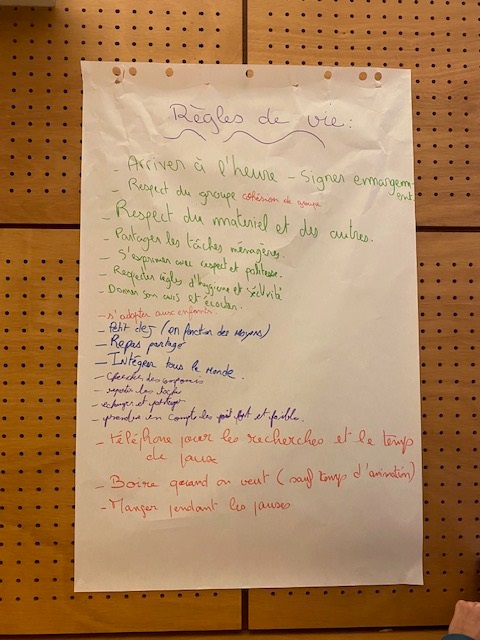 Règles de vie :
- Arriver à l'heure - Signer emargement
- Respect du groupe cohésion de groupe
- Respect du materiel et des autres.
- Partager les tâches ménagères.
- S'exprimer avec respect et politesse.
- Respecter règles d'hygiène et sécurité
- Donner son avis et écouter.
- s'adapter aux enfants
- Petit dej (en fonction des moyens)
- Repas partagé
- Intégrer tous le monde.
- chercher des compromis
- repartir les taches
- echanger et partager
- prendre en compte les point fort et faible.
- téléphone pour les recherches et le temps
de pause
- Boire quand on veut (sauf temps d'animation)
- Manger pendant les pauses